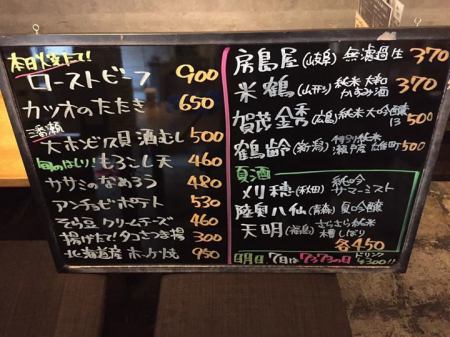 本日入荷たて!
ローストビーフ 900
カツオのたたき 650
大ホンビノス貝 酒むし 500
旬のはしり! もろこし天 460
カサミのなめろう 480
アンチョビポテト 530
そら豆クリームチーズ 460
揚げたて!タコさつま揚 300
北海道産ホッケ焼 950
房島屋(岐阜) 無濾過生 370
米鶴(山形) 純米 大和 かすみ酒 370
賀茂金秀(広島) 純米大吟醸 13 500
鶴齢(新潟) 特別純米 瀬戸産 500
夏酒
刈穂(秋田) 純吟 サマーミスト
陸奥八仙(青森) 夏吟醸
天明(福島) さらさら純米 槽しぼり
各450
明日 7日は 73'73'の日 ドリンク ¥300!!